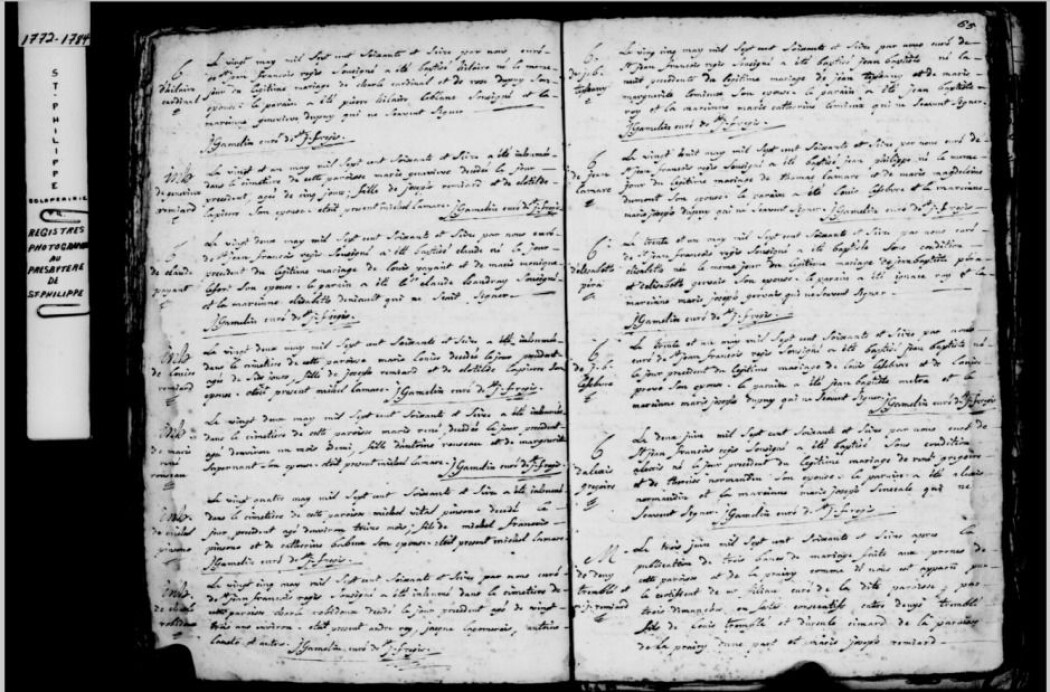 1772-1784
ST-PHILIPPE
REGISTRES
PHOTOGRAPHIÉ
AU
PRESBYTERE
DE
ST PHILIPPE
B
d'hilaire
cardinal
Le vingt may mil Sept cent Soixante et Seize par nous curé
de St jean françois regis Sousigné a été baptisé hilaire né le meme
jour du legitime mariage de charle cardinal et de rose dupuy Son
epouse le parain a été pierre hilaire Sousigné et la
maraine genevieve dupuy qui ne Scavent Signer
J Gamelin curé de St J. f regis.
de genevieve
remiard
Le vingt et un may mil Sept cent Soixante et Seize a été inhumée
dans le cimetiere de cette paroisse marie genevieve decedée le jour
precedent, agée de cinq jours, fille de joseph remiard et de clotilde
lapierre Son epouse. etoit present michel lamarre. J Gamelin curé de St J. f regis
B
de claude
payant
Le vingt deux may mil Sept cent Soixante et Seize par nous curé
de St jean françois regis Sousigné a été baptisé claude né le jour
precedent du legitime mariage de louis payant et de marie monique
Son epouse. le parain a été claude Sousigné
et la maraine elisabeth deniault qui ne Scait Signer
J Gamelin curé de St J. f regis.
de louise
remiard
Le vingt deux may mil Sept cent Soixante et Seize a été inhumée
dans le cimetiere de cette paroisse marie louise decedée le jour precedent
agée de Six jours, fille de joseph remiard et de clotilde lapierre Son
epouse. etoit present michel lamarre. J Gamelin curé de St J. f regis.
de marie
rousseau
Le vingt deux may mil Sept cent Soixante et Seize a été inhumée
dans le cimetiere de cette paroisse marie decedée le jour precedent
agé denviron un mois demi, fille d'antoine rousseau et de marguerite
Supernant Son epouse. etoit present michel lamarre. J Gamelin curé de St J. f regis.
de michel
pinsono
Le vingt quatre may mil Sept cent Soixante et Seize a été inhumé
dans le cimetiere de cette paroisse michel vital pinsono decedé le
jour precedent agé denviron treize mois, fils de michel françois
pinsono et de catherine Son epouse. etoit present michel lamarre.
J Gamelin curé de St J. f regis.
de charle
robidoux
Le vingt cinq may mil Sept cent Soixante et Seize par nous curé
de St jean françois regis Sousigné a été inhumé dans le cimetiere de
cette paroisse charle robidoux decedé le jour precedent agé de vingt
trois ans environ. etoit present andre roy, jacque antoine
et autres. J Gamelin curé de St J. f regis.
65.
B
de j. b.
Le vingt cinq may mil Sept cent Soixante et Seize par nous curé de
St jean françois regis Sousigné a été baptisé jean baptiste né la
nuit precedente du legitime mariage de jean et de marie
marguerite lemieux Son epouse. le parain a été jean baptiste
roy et la maraine marie catherine lemieux qui ne Scavent Signer.
J Gamelin curé de St J. f regis.
B
de jean
lamarre
Le vingt huit may mil Sept cent Soixante et Seize par nous curé de
St jean françois regis Sousigné a été baptisé jean philippe né le meme
jour du legitime mariage de thomas lamarre et de marie magdeleine
dumont Son epouse. le parain a été louis lefebvre et la maraine
marie joseph dupuy qui ne Scavent Signer. J Gamelin curé de St J. f regis
B
d'elisabeth
Le trente et un may mil Sept cent Soixante et Seize par nous curé
de St jean françois regis Sousigné a été baptisée Sous condition
elisabeth née le meme jour du legitime mariage de jean baptiste
et d'elisabeth gervais Son epouse. le parain a été ignace roy et la
maraine marie joseph gervais qui ne Scavent Signer.
J Gamelin curé de St J. f regis.
B
de j. b.
lefebvre
Le trente et un may mil Sept cent Soixante et Seize par nous
curé de St jean françois regis Sousigné a été baptisé jean baptiste né
le jour precedent du legitime mariage de louis lefebvre et de louise
Son epouse. le parain a été jean baptiste et la
maraine marie joseph dupuy qui ne Scavent Signer. J Gamelin curé de St J. f regis
B
d'alexis
gregoire
Le deux juin mil Sept cent Soixante et Seize par nous curé de
St jean françois regis Sousigné a été baptisé Sous condition
alexis né le jour precedent du legitime mariage de rené gregoire
et de therese normandin Son epouse. le parain a été alexis
normandin et la maraine marie joseph qui ne
Scavent Signer. J Gamelin curé de St J. f regis.
M.
tremblé et
remiard
Le trois juin mil Sept cent Soixante et Seize apres la
publication de trois bans de mariage faite aux prones de
cette paroisse et de la prairy comme il nous est apparu par
le certificat de mr filiau curé de la dite paroisse, par
trois dimanches, ou fetes consecutifs entre tremblé
fils de louis tremblé et d'ursule simard de la paroisse
de la prairy d'une part et marie joseph remiard